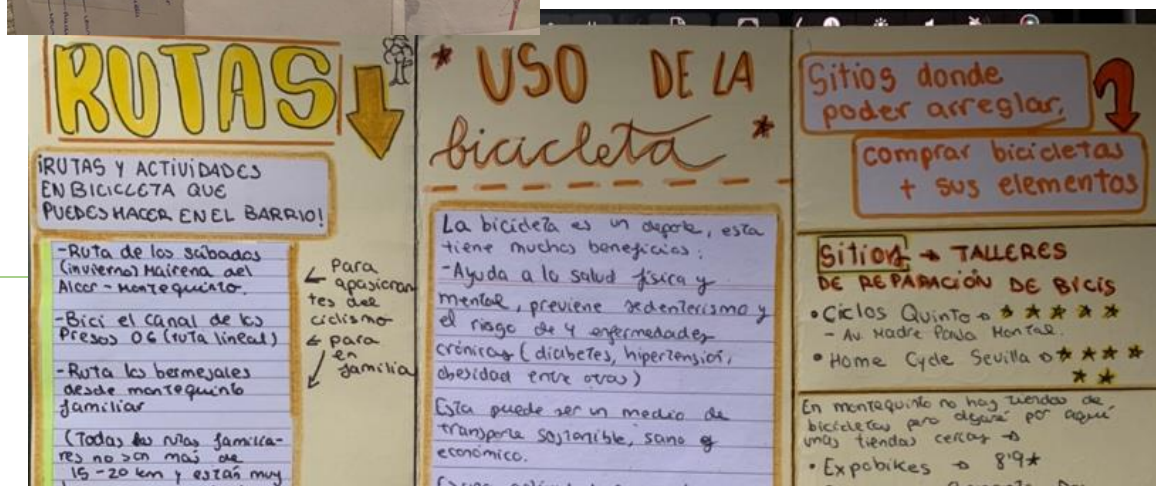 RUTAS
¡RUTAS Y ACTIVIDADES
EN BICICLETA QUE
PUEDES HACER EN EL BARRIO!
-Ruta de los sábados
(invierno) Mairena del
Alcor - Montequinto.
-Bici el Canal de los
Presos 06 (ruta lineal)
-Ruta los bermejales
desde montequinto
familiar
(Todas las rutas familia-
res no son mas de
15-20 km y están muy
Para
apasionan
tes del
ciclismo
para
en
familia
USO DE LA
bicicleta
La bicicleta es un deporte, esta
tiene muchos beneficios:
-Ayuda a la salud física y
mental, previene sedenterismo y
el riesgo de 4 enfermedades
crónicas (diabetes, hipertensión,
obesidad entre otras)
Esta puede ser un medio de
transporte sostenible, sano y
económico.
Sitios donde
poder arreglar,
comprar bicicletas
+ sus elementos
Sitios → TALLERES
DE REPARACIÓN DE BICIS
• Ciclos Quinto → ★★★★★
- Av. Madre Paula Montal.
• Home Cycle Sevilla → ★★★★
★★
En montequinto no hay tiendas de
bicicletas pero dejaré por aquí
unas tiendas cercas →
• Expobikes → 8'9★